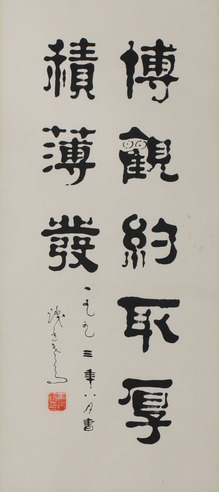 博觀約取厚
積薄發
一九九三年八月書